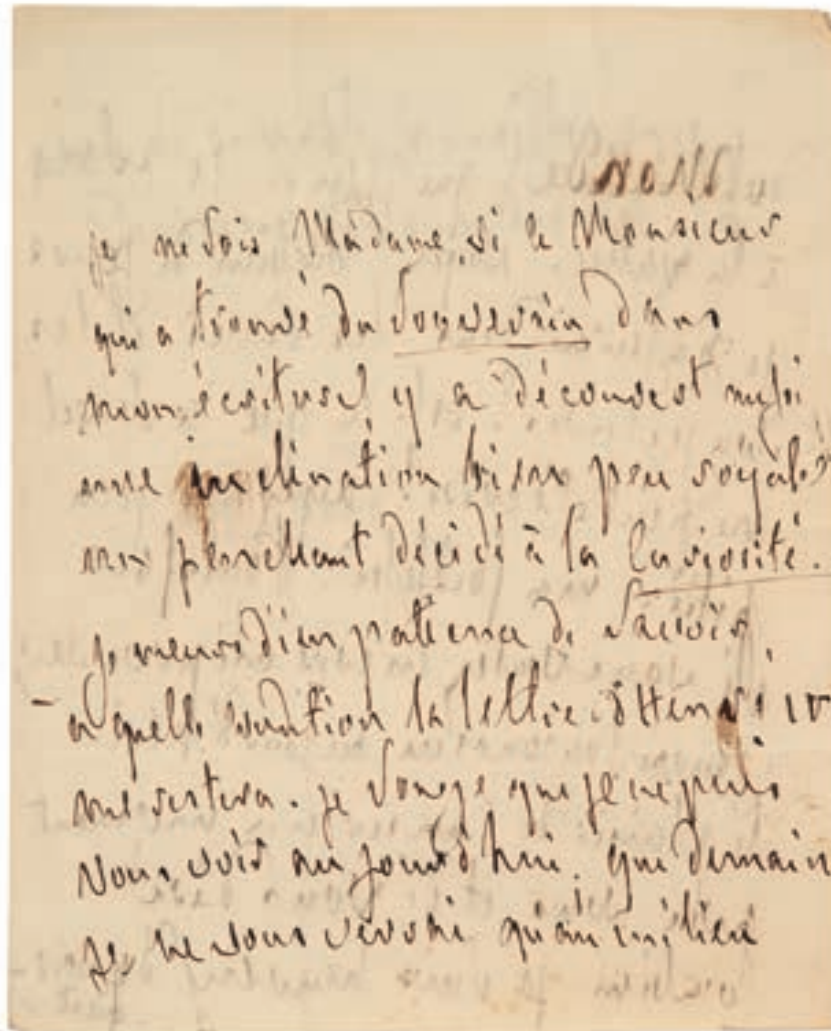 je ne sais Madame, si le Monsieur
qui a trouvé du Souverain dans
mon écriture y a découvert aussi
une inclination bien peu royale,
un penchant décidé à la Curiosité.
je meurs d'impatience de savoir
à quelle condition la lettre d'Henri IV
me restera. je songe que je ne puis
vous voir aujourd'hui. que demain
je ne vous verrai qu'au milieu